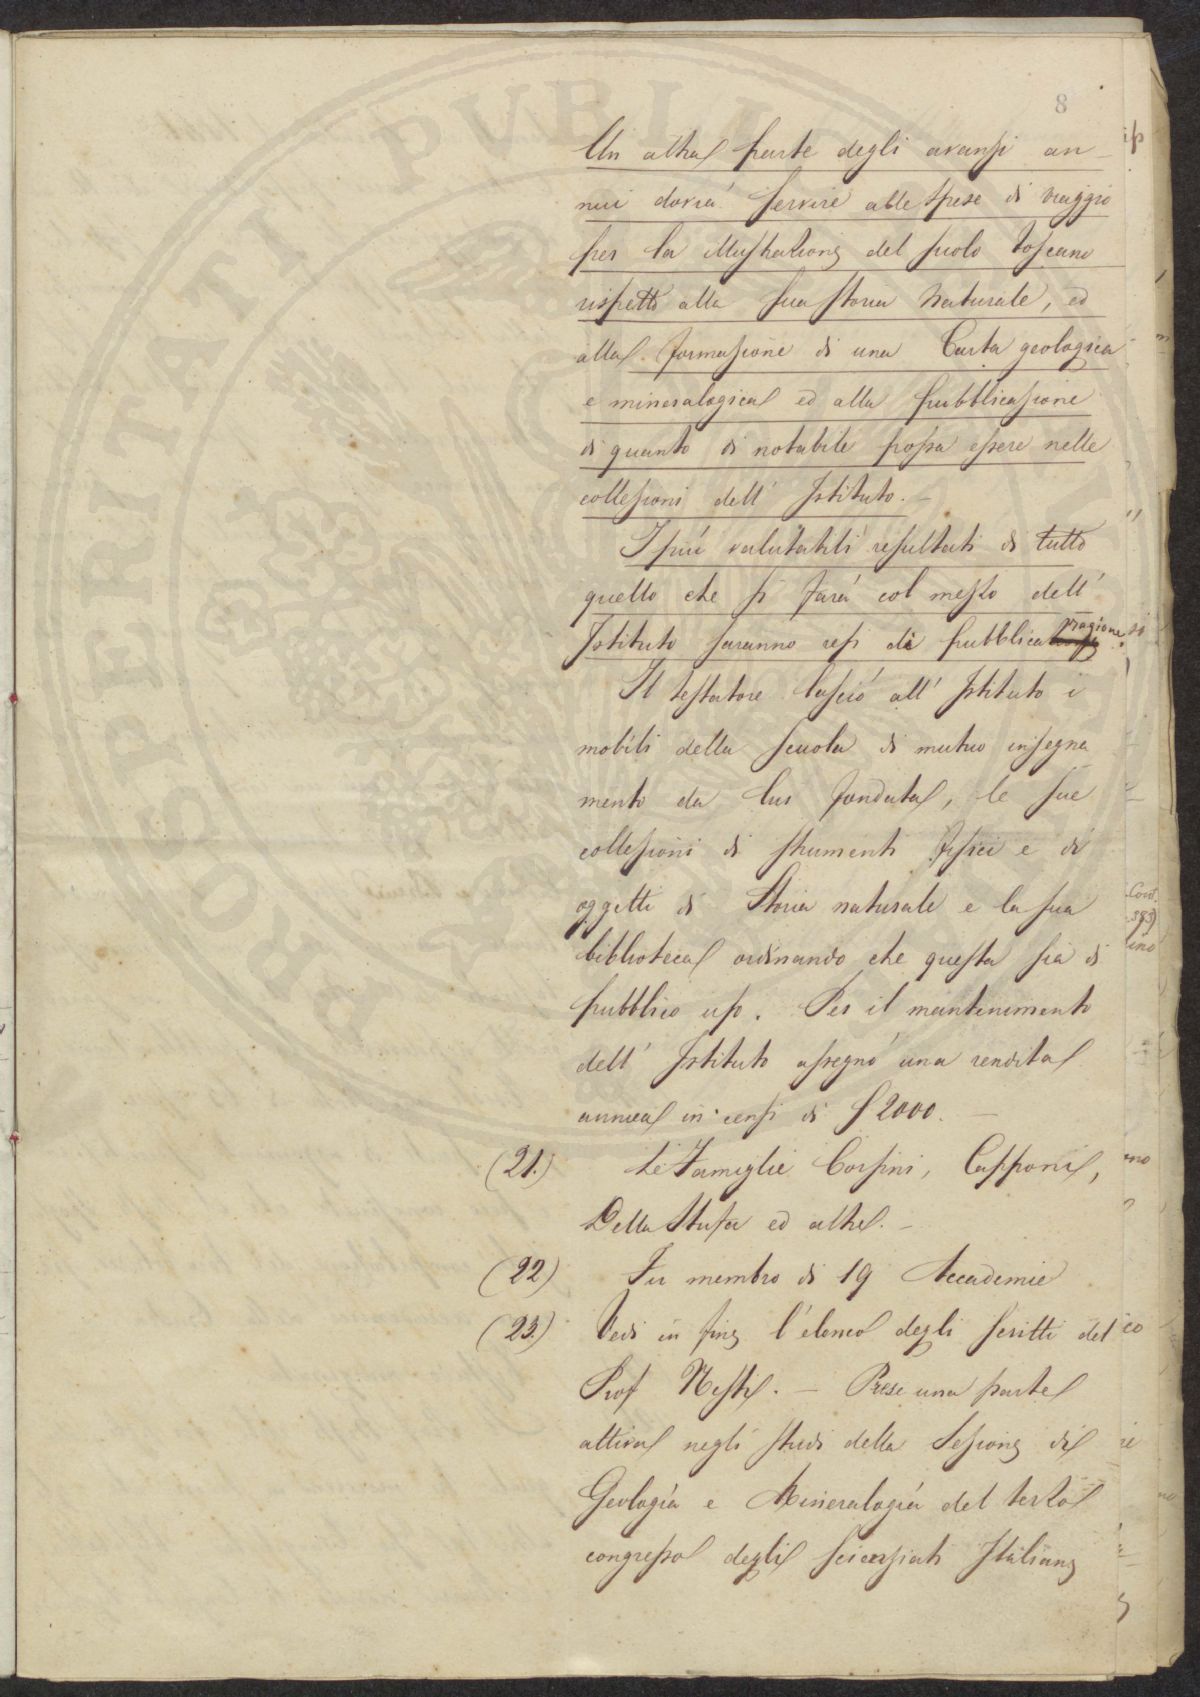 8
Un altra parte degli avanzi an-
nui dovrà servire alle spese di viaggio
per la illustrazione del suolo toscano
rispetto alla sua storia naturale, ed
alla formazione di una Carta geologica
e mineralogica ed alla pubblicazione
di quanto di notabile possa essere nelle
collezioni dell' Istituto. -
I più valutabili resultati di tutto
quello che si farà col mezzo dell'
Istituto saranno resi di pubblica ragione.
Il testatore lasciò all' Istituto i
mobili della scuola di mutuo insegna
mento da lui fondata, le sue
collezioni di strumenti fisici e di
oggetti di Storia naturale e la sua
biblioteca ordinando che questa sia di
pubblico uso. Per il mantenimento
dell' Istituto assegnò una rendita
annua in censi di £ 2000. -
(21.) Le Famiglie Corsini, Capponi,
Della Stufa ed altre. -
(22) Fu membro di 19 Accademie
(23.) Vedi in fine l'elenco degli scritti del
Prof Nesti. - Prese una parte
attiva negli studi della Sezione di
Geologia e Mineralogia del terzo
congresso degli Scienziati Italiani
PROSPERITATI PUBLICAE